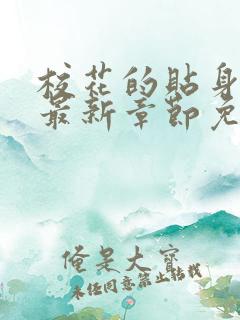 校花的貼身
最新章節免
俺是大寶
未任同意禁止转载